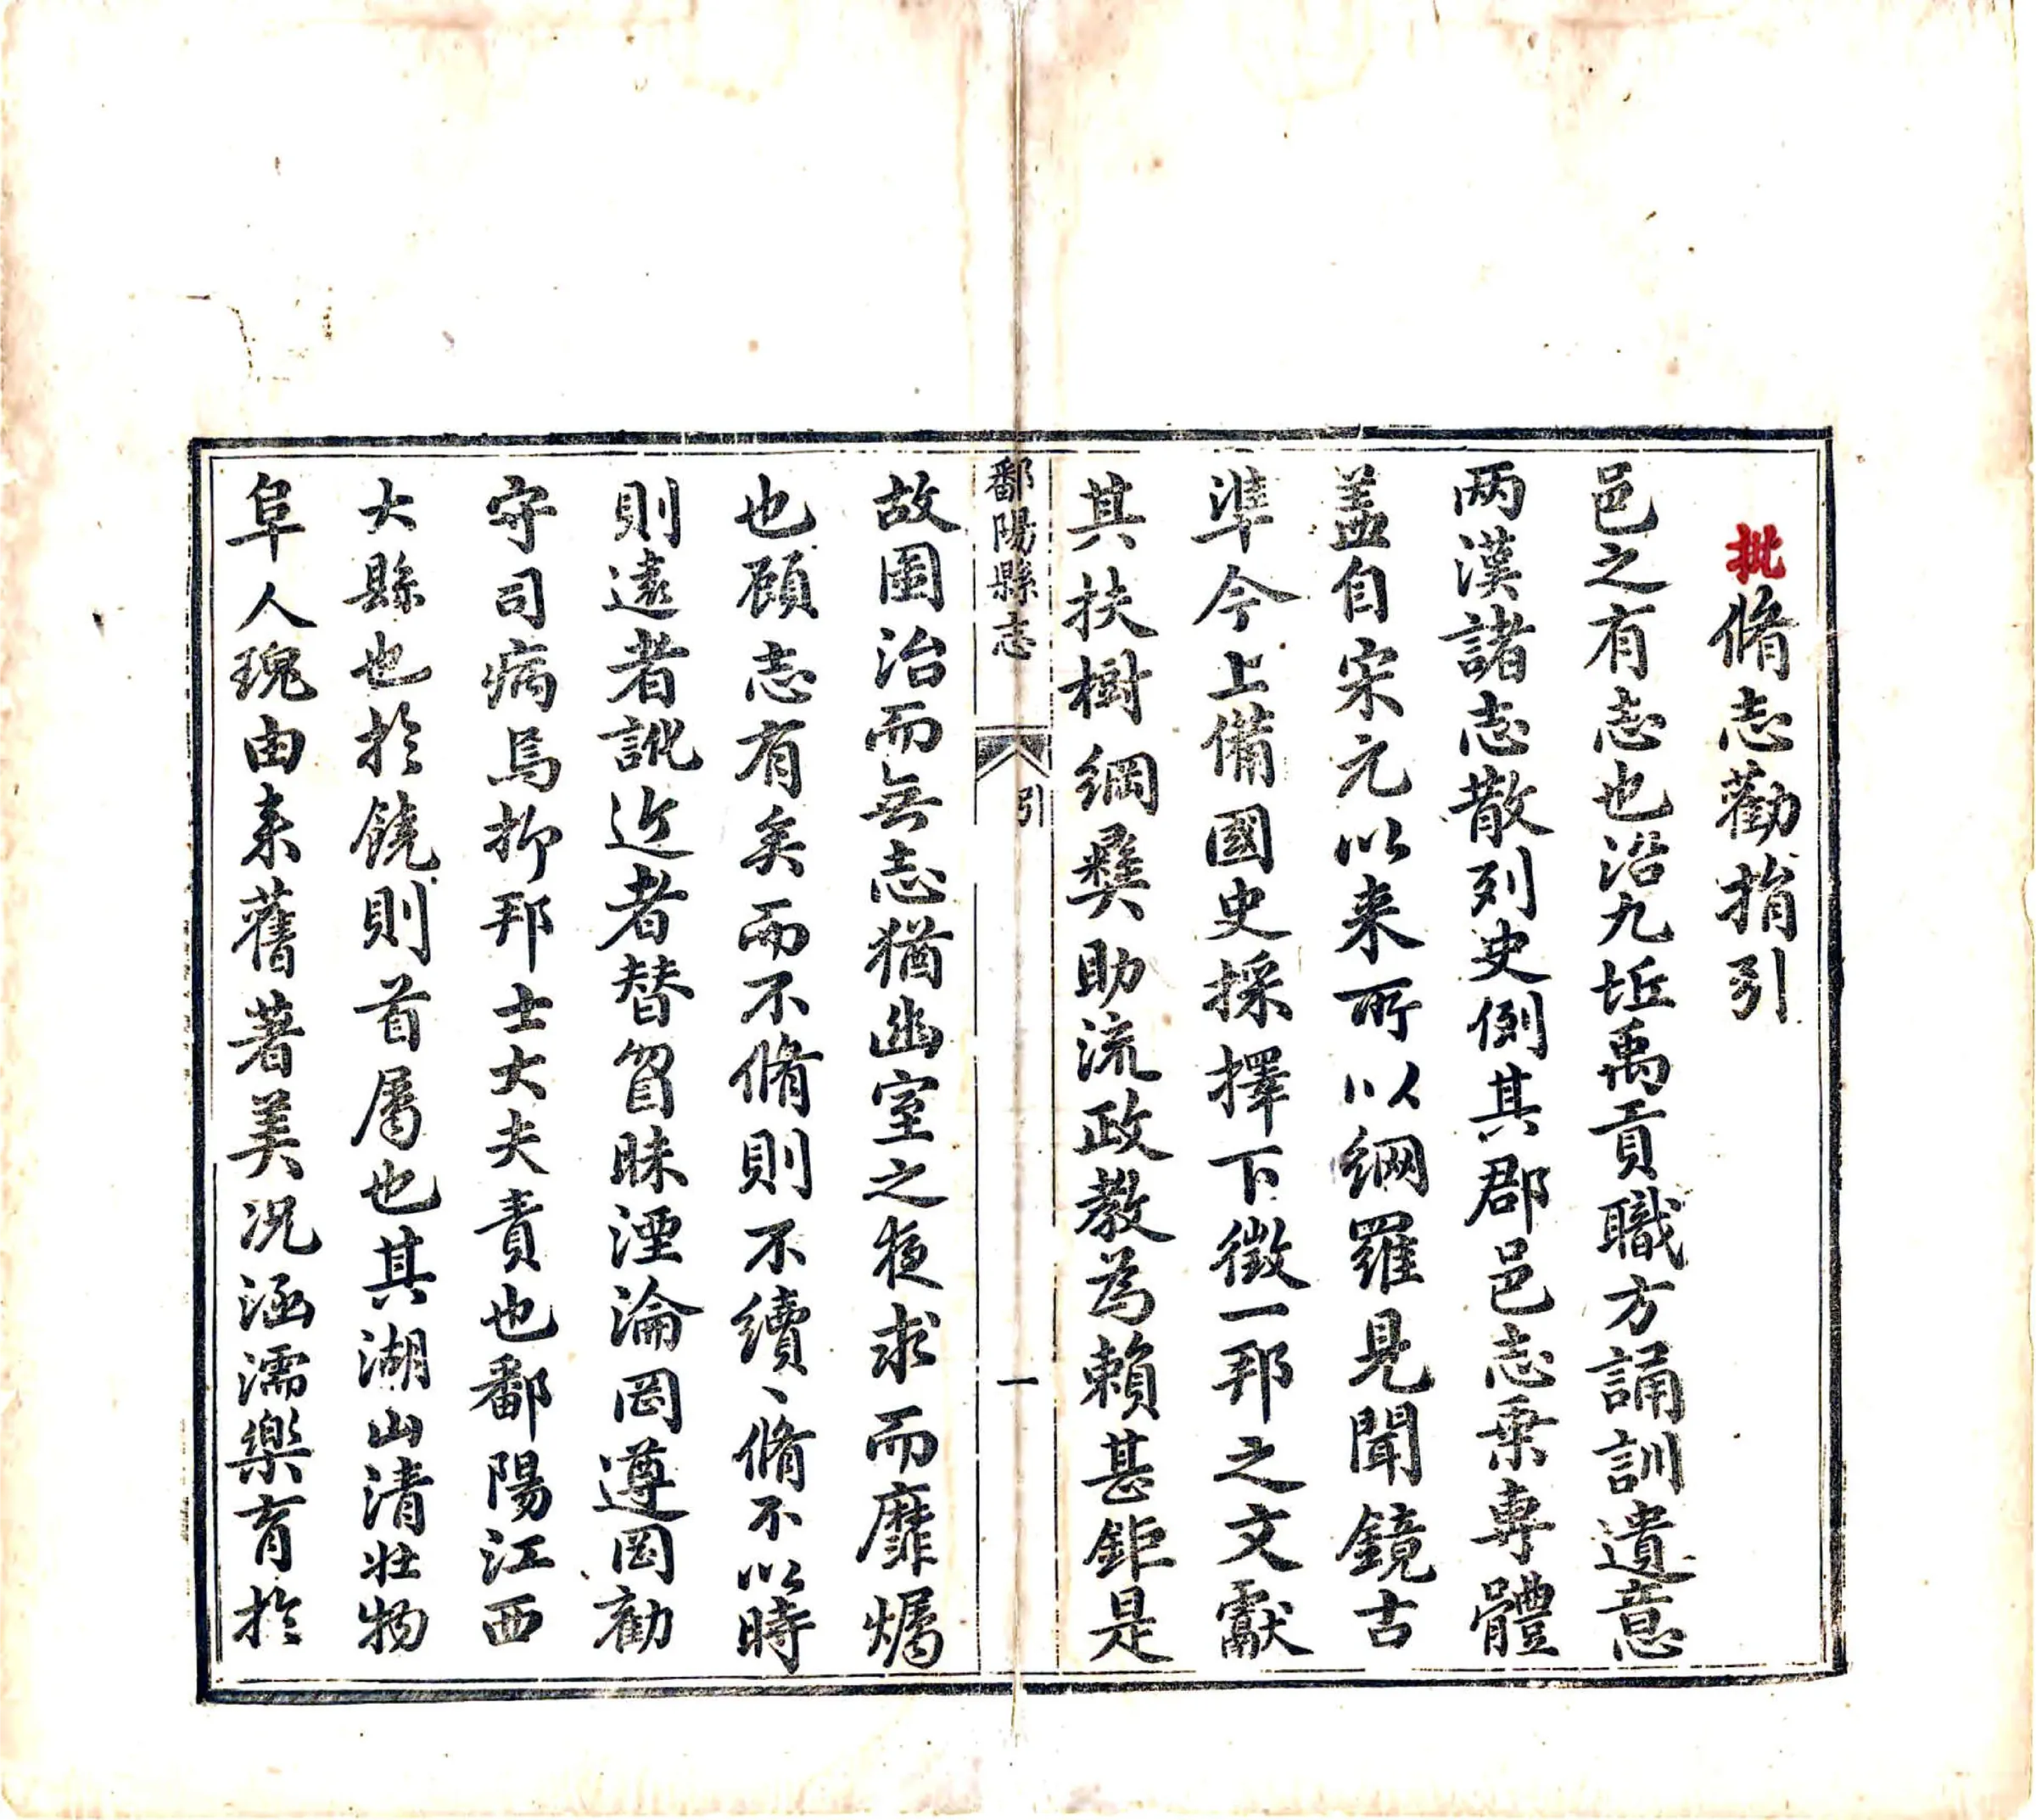 批
脩志勸捐引
邑之有志也沿九坵禹貢職方誦訓遺意
兩漢諸志散列史例其郡邑志乘專體
盖自宋元以来所以網羅見聞鏡古
準今上備國史採擇下徵一邦之文獻
其扶樹綱彝助流政教為賴甚鉅是
鄱陽縣志
引
一
故圖治而無志猶幽室之夜求而靡燭
也顧志有矣而不脩則不續、脩不以時
則遠者訛近者替貿昧湮淪罔遵罔勸
守司病焉抑邦士大夫責也鄱陽江西
大縣也於饒則首属也其湖山清壮物
阜人瑰由来舊著美况涵濡樂育於